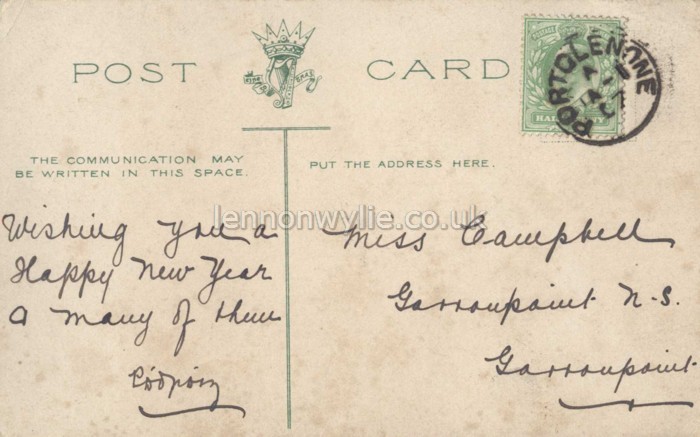 POST CARD
PORTGLENONE
HALFPENNY
THE COMMUNICATION MAY
BE WRITTEN IN THIS SPACE.
PUT THE ADDRESS HERE.
lennonwylie.co.uk
Wishing you a
Happy New Year
a many of them
Miss Campbell
Garronpoint N.S.
Garronpoint